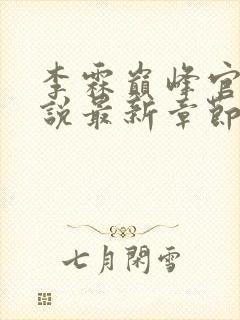 李霖巔峰官
說最新章節
七月閑雪